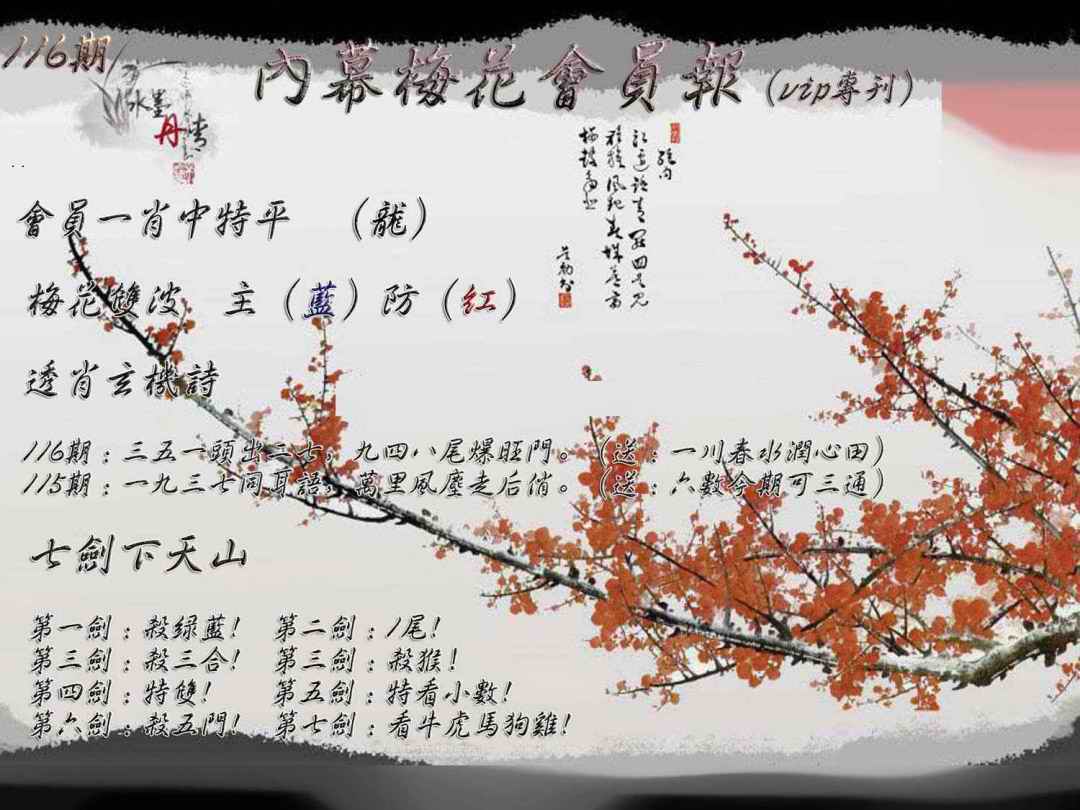 116期
內幕梅花會員報（vip專刊）
水墨
丹青
會員一肖中特平　（龍）
梅花雙波　主（藍）防（红）
透肖玄機詩
116期：三五一頭出二七，九四八尾爆旺門。（送：一川春水潤心田）
115期：一九三七同耳語，萬里風塵走后俏。（送：六數今期可三通）
七劍下天山
第一劍：殺绿藍！　第二劍：1尾！
第三劍：殺三合！　第三劍：殺猴！
第四劍：特雙！　第五劍：特看小數！
第六劍：殺五門！　第七劍：看牛虎馬狗雞！